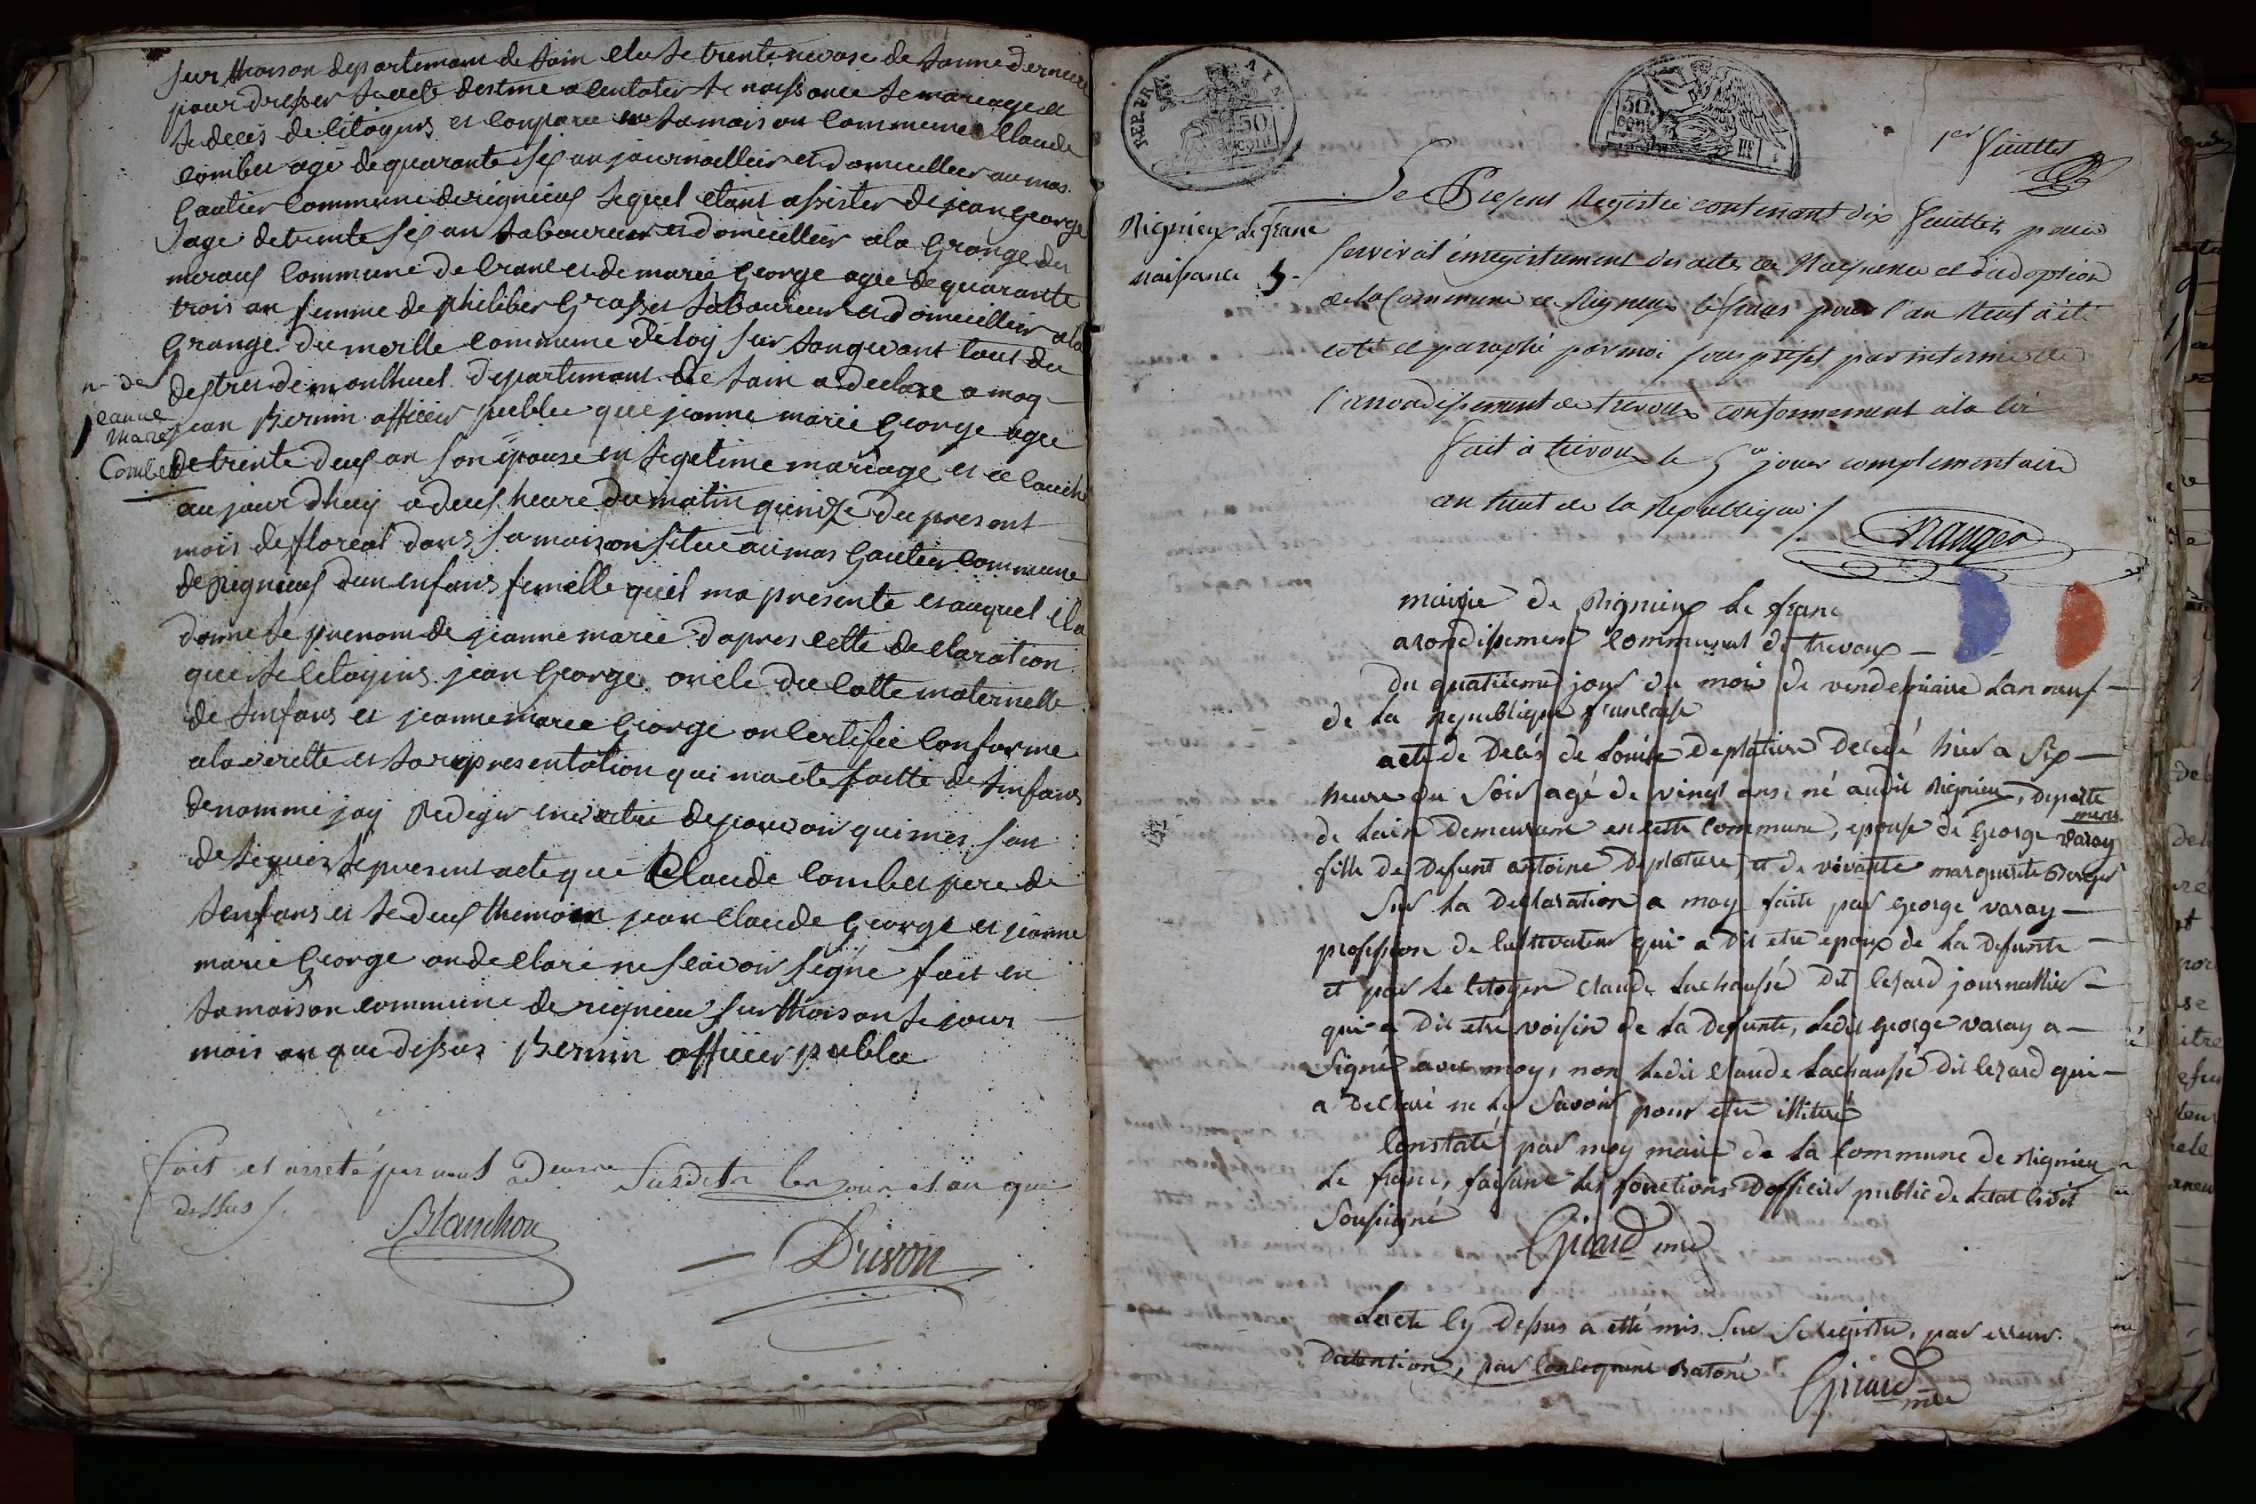 sur thoison departemant de lain elu le trente nivose de lanne derniere
pour dresser le acte destine a contater le naissance le mariage et
le deces de citoyens et conparu en la maison commune Claude
combet age de quarante six an journallier et domicillier au mas
gautier commune de rignieux lequel etant assister de jean george
age de trente six an laboureur et domicillier a la grange du
commune de crans et de marie george agee de quarante
trois an femme de philiber grosset laboureur et domicillier a la
grange du morille commune de loy sur tous du
destrer de monthuel departemant de lain a declare a moy
n de
jeanne
marie
Combet
jean Bernin officier public que jeanne marie george agee
de trente deux an son epouse en legetime mariage et acouche
au jourdhuy a deux heure du matin quinze du present
mois de floreal dans sa maison situe au mas gautier commune
de Rignieux dun enfans femelle quil ma presente et auquel il a
donne le prenom de jeanne marie dapres cette declaration
que le citoyins jean george oncle du cotte maternelle
de lenfans et jeanne marie george on certifie conforme
a la verette et la representation qui ma ete faitte de lenfans
denomme jay Redeger en vertue de pouvoir qui mes son
delegues le present acte que Claude combet pere de
lenfans et le deux themoin jean claude george et jeanne
marie george on declare ne scavoir signe fait en
la maison commune de rignieu sur thoison le jour
mois an que dessus Bernin officier public
fait et arreté par nous Susdits les jour et an que
dessus
Blanchon
Drivon
REP. FRA.
50
cent
50
cent
1er feuillet
Rignieux le franc
naissance 5.
Le Present Registre contenant dix feuilles pour
servir à l'enregistrement des actes de Naissance et d'adoption
de la Commune de Rignieux le franc pour l'an Neuf a été
coté et paraphé par moi sous préfet par interim de
l'arrondissement de Trevoux conformement à la loi
fait à trevoux le 5e jour complementaire
an huit de la Republique
mairie de Rignieux le franc
arondissement communal de trevoux
du quatrieme jour du mois de vendemiaire lan neuf
de la republique francaise
acte de Décés de Louise Deplature Decedé hier a six
heure du soir agé de vingt ans, né audit Rignieu, departe
ment
de Lain Demeurant en cette commune, epouse de George Varay
fille de Defunt antoine Deplature, et de vivante marguerite Borgey
Sur la Declaration a moy faite par George varay
profession de cultivateur qui a dit etre epoux de la defunte
et par le citoyen Claude Lachaussé dit lezard journallier
qui a Dit etre voisin de la defunte, ledit George varay a
Signé avec moy, non ledit Claude Lachaussé dit lezard qui
a Declaré ne le Savoir pour etre illitéré
Constaté par moy maire de la commune de Rignieu
le franc, faisant les fonctions Dofficier public de letat civil
Soussigné
Giraud mre
Lacte cy dessus a etté mis sur ce registre, par erreur
dattention, par consequent Batoné
Giraud
mre